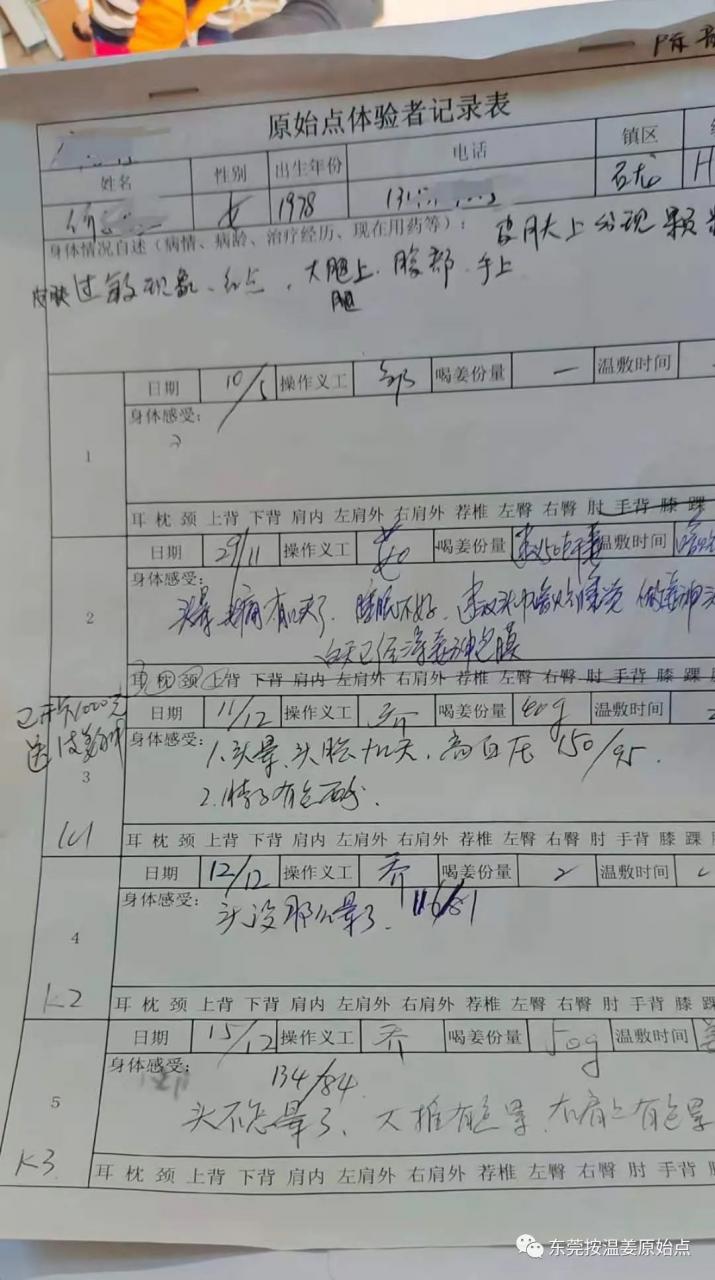 原始点体验者记录表
姓名 性别 出生年份 电话 镇区
女 1978 131 石龙 H
身体情况自述（病情、病龄、治疗经历、现在用药等）： 皮肤上发现颗
皮肤过敏现象、红点，大腿上、胸部、手上
腿
1 日期 10/5 操作义工 喝姜份量 一 温敷时间
身体感受：
耳 枕 颈 上背 下背 肩内 左肩外 右肩外 荐椎 左臀 右臀 肘 手背 膝 踝
2 日期 29/11 操作义工 喝姜份量 温敷时间
身体感受：
头晕 头痛有几天了. 睡眠不好.
白天已经
耳 枕 颈 上背 下背 肩内 左肩外 右肩外 荐椎 左臀 右臀 肘 手背 膝 踝
3 日期 11/12 操作义工 乔 喝姜份量 40g 温敷时间
已开卡1000元
送
身体感受：
1.头晕、头胀 几天，高血压 150/95.
2.脖子有点酸.
耳 枕 颈 上背 下背 肩内 左肩外 右肩外 荐椎 左臀 右臀 肘 手背 膝 踝
4 日期 12/12 操作义工 乔 喝姜份量 2 温敷时间
身体感受：
头没那么晕了. 116/81
K2
耳 枕 颈 上背 下背 肩内 左肩外 右肩外 荐椎 左臀 右臀 肘 手背 膝 踝
5 日期 15/12 操作义工 乔 喝姜份量 50g 温敷时间
身体感受：
134/84
头不怎晕了、大椎有包晕、右肩上有包晕
K3
耳 枕 颈 上背 下背 肩内 左肩外 右肩外 荐椎 左臀 右臀 肘 手背 膝
东莞按温姜原始点